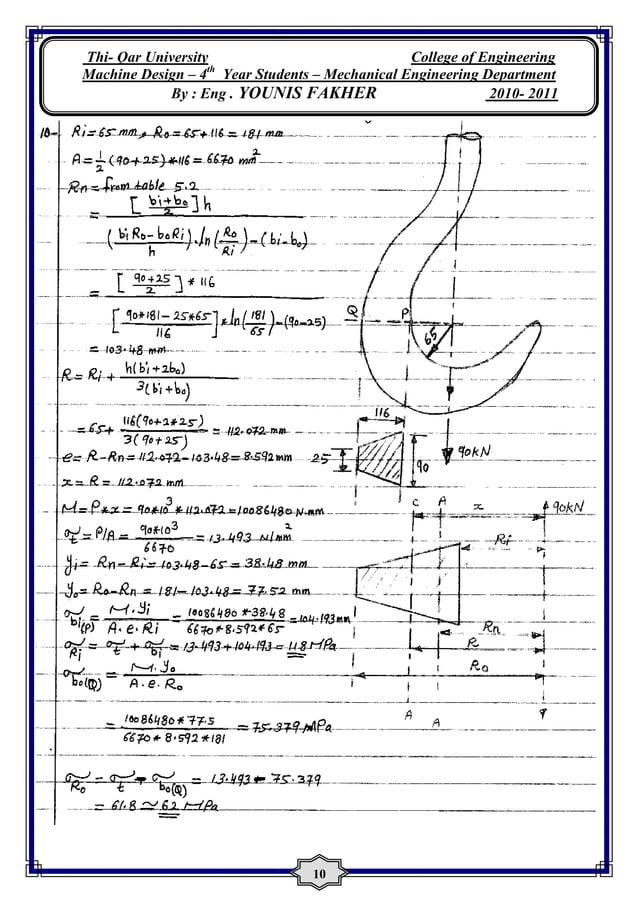 Thi- Qar University College of Engineering
Machine Design – 4th Year Students – Mechanical Engineering Department
By : Eng . YOUNIS FAKHER 2010- 2011
10- Ri = 65 mm, Ro = 65+116 = 181 mm
A = 1/2 (90+25)*116 = 6670 mm²
Rn = from table 5.2
= [bi+bo/2] h
(biRo-boRi/h).ln(Ro/Ri)-(bi-bo)
= [90+25/2] * 116
[90*181-25*65/116]*ln(181/65)-(90-25)
= 103.48 mm
R = Ri + h(bi+2bo)/3(bi+bo)
= 65+ 116(90+2*25)/3(90+25) = 112.072 mm
e = R-Rn = 112.072-103.48 = 8.592 mm
x = R = 112.072 mm
M = P*x = 90*10³*112.072 = 10086480 N.mm
σt = P/A = 90*10³/6670 = 13.493 N/mm²
yi = Rn-Ri = 103.48-65 = 38.48 mm
yo = Ro-Rn = 181-103.48 = 77.52 mm
σbi(P) = M.yi/A.e.Ri = 10086480*38.48/6670*8.592*65 = 104.193 mm
σRi = σt + σbi = 13.493+104.193 = 118 MPa
σbo(Q) = M.yo/A.e.Ro
= 10086480*77.5/6670*8.592*181 = 75.379 MPa
σRo = σt - σbo(Q) = 13.493 - 75.379
= 61.8 ≃ 62 MPa
Q P
65
116
90kN
25
90
C A x 90kN
Ri
Rn
R
Ro
A A P
10